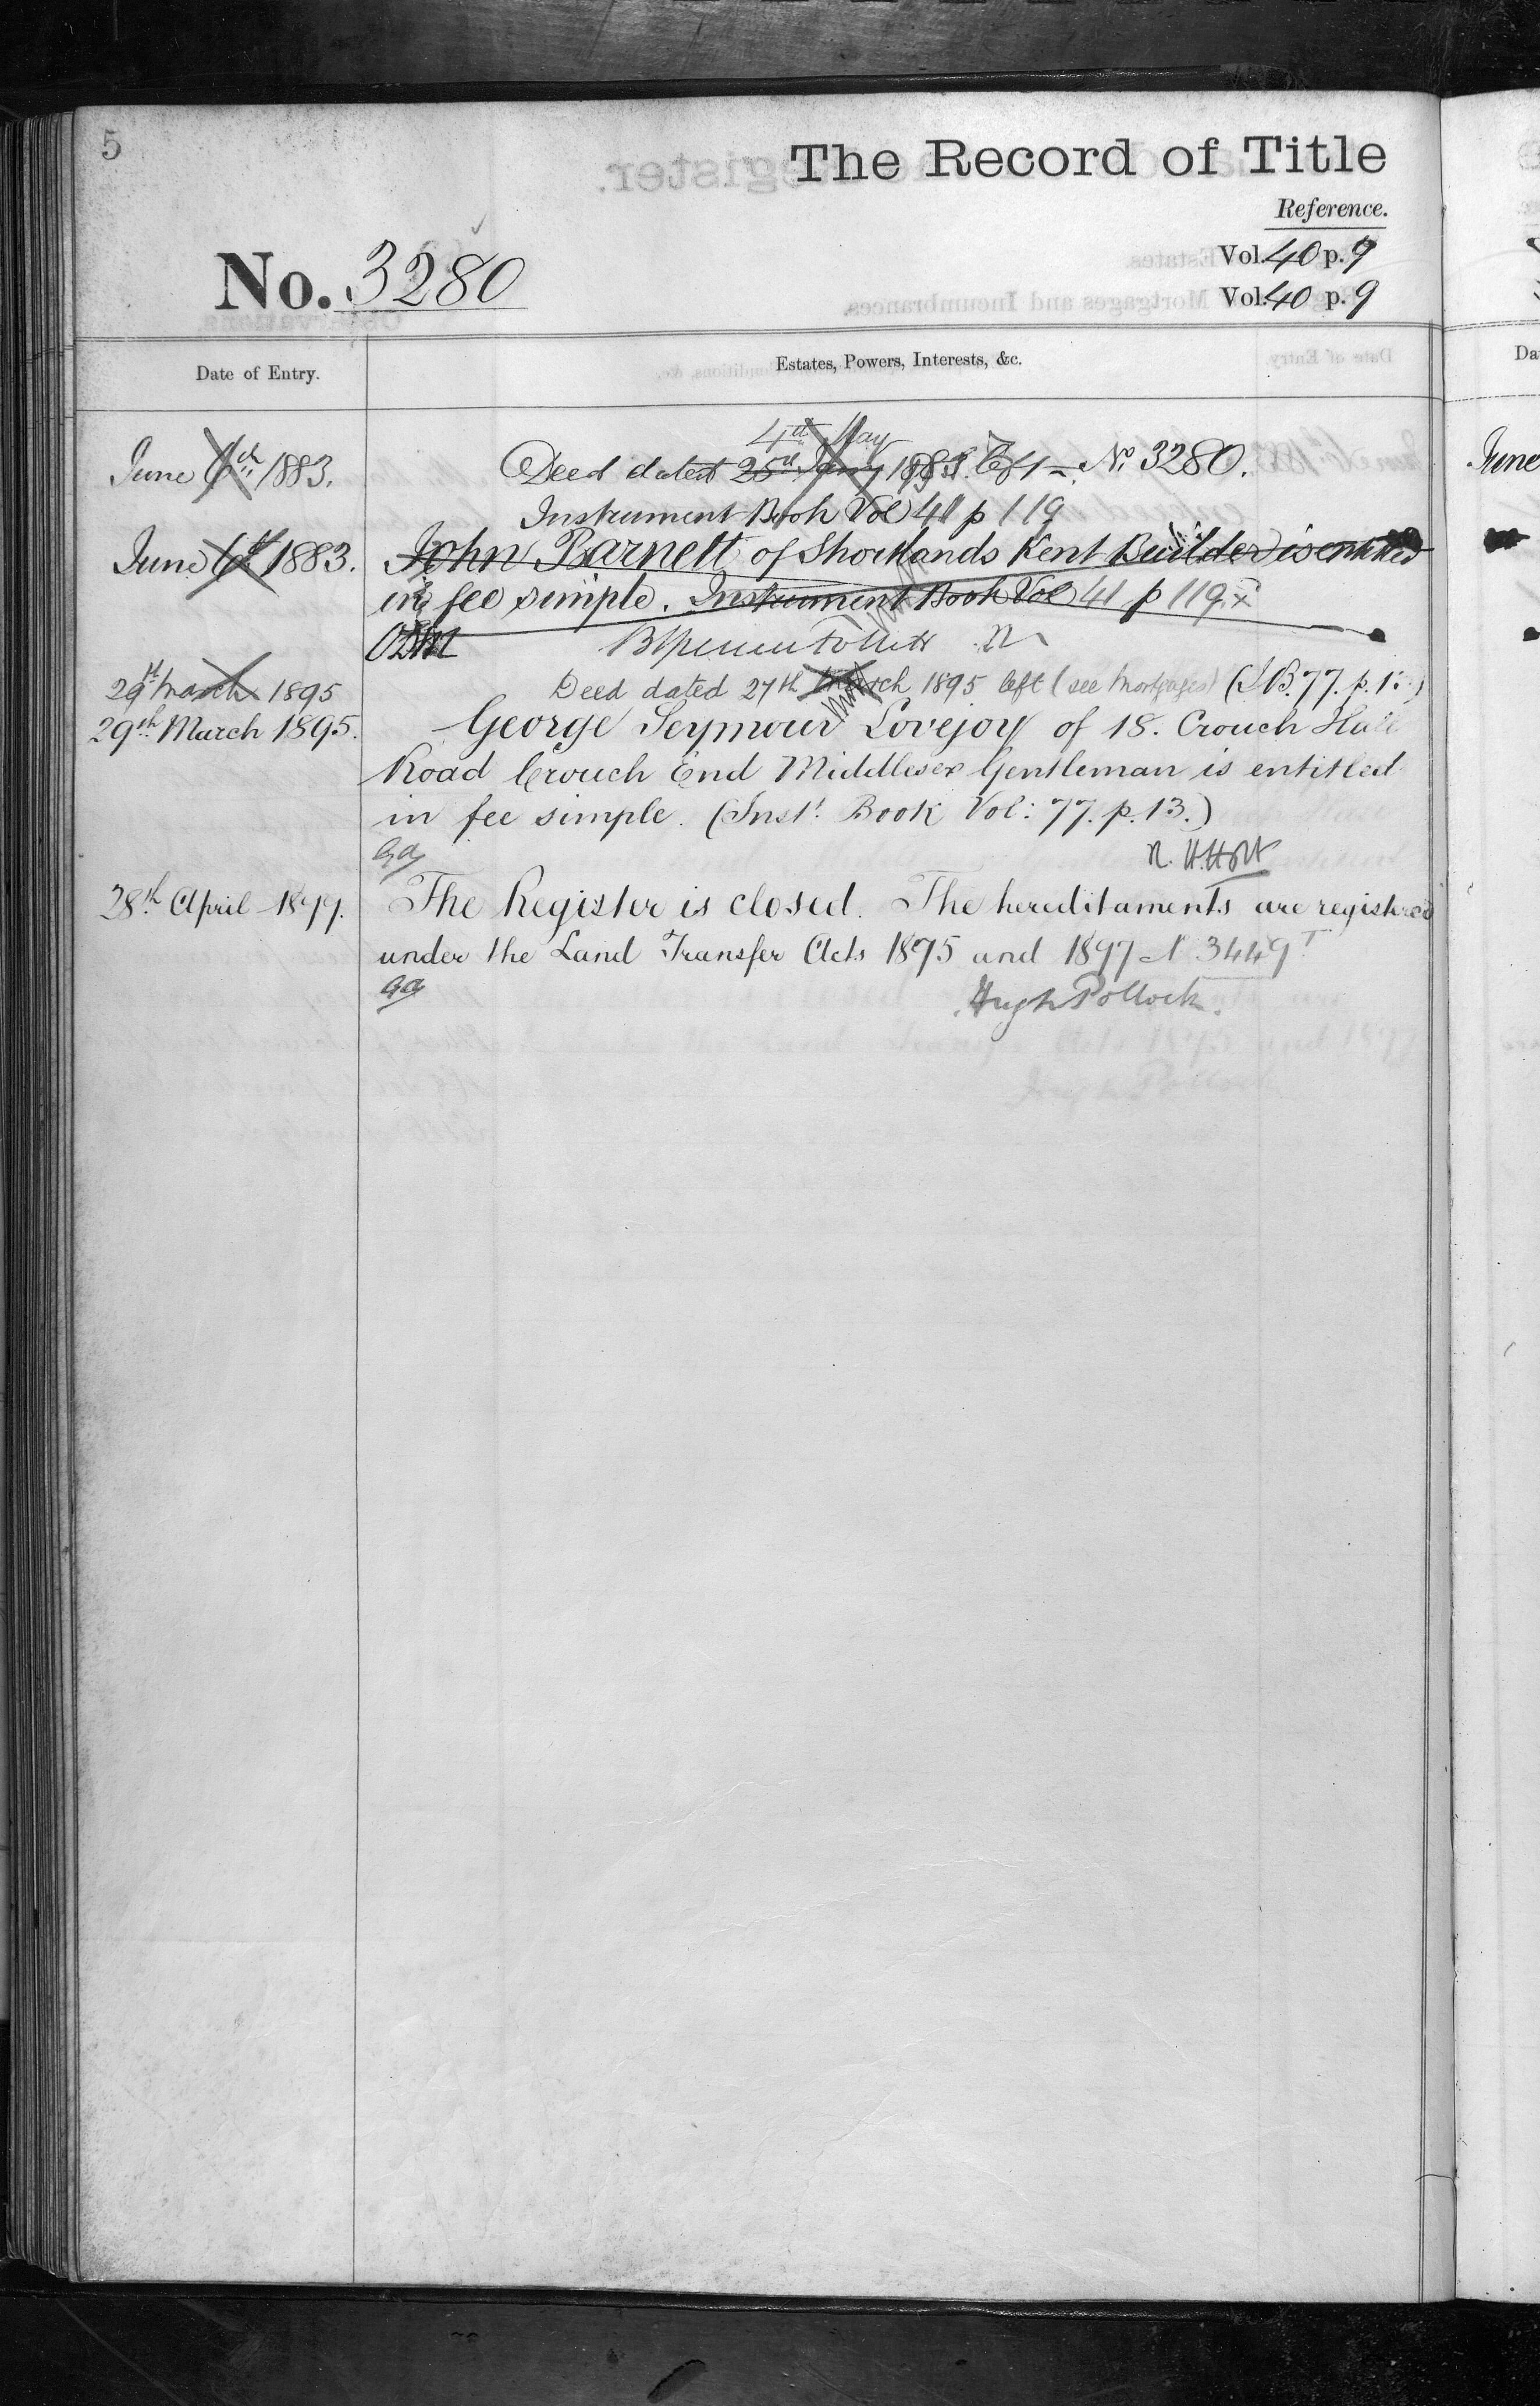 5
The Record of Title
Reference.
No. 3280
Vol. 40 p. 9
Vol. 40 p. 9
Date of Entry.
Estates, Powers, Interests, &c.
4th May
June 6th 1883.
Deed dated 25th Jany 1883 left No. 3280.
Instrument Book Vol 41 p 119
June 6th 1883.
John Barnett of Shortlands Kent Builder is entitled
in fee simple. Instrument Book Vol 41 p 119
29th March 1895
Deed dated 27th March 1895 left (see Mortgages) (I.B. 77. p. 13)
29th March 1895.
George Seymour Lovejoy of 18. Crouch Hall
Road Crouch End Middlesex Gentleman is entitled
in fee simple. (Inst. Book Vol: 77. p. 13.)
28th April 1899.
The Register is closed. The hereditaments are registered
under the Land Transfer Acts 1875 and 1897 No 3449
Hugh Pollock.
Da
June